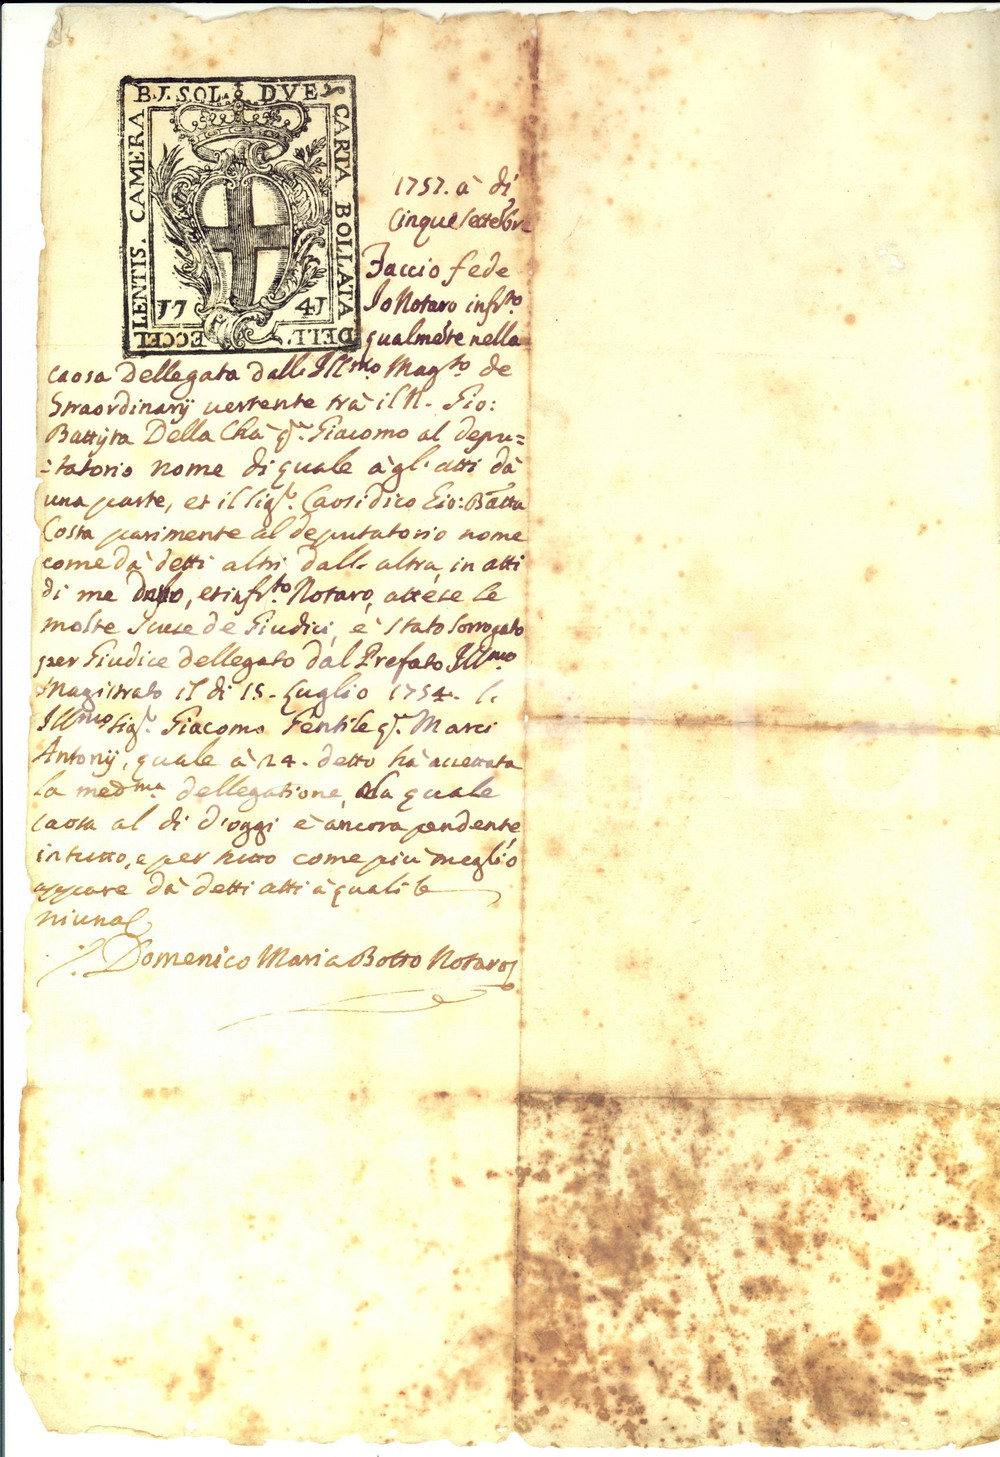 B.J. SOL. DVE
CARTA BOLLATA
DELL'. ECCEL
LENTIS. CAMERA
17 41
1757. à di
Cinque settebre
Faccio fede
Io Notaro infr.to
qualmēte nella
caosa dellegata dall. Ill.mo Mag.to de
Straordinarij vertente trà il N. Gio:
Battista Della Chà q.m Giacomo al depu=
=tatorio nome di quale à gl. atti dà
una parte, et il Sig.r Caosidico Gio: Batta
Costa parimente al deputatorio nome
come dà detti altri dall. altra, in atti
di me , et infr.to Notaro, attese le
molte Scuse de Giudici, è stato sorrogato
per Giudice dellegato dal Prefato Ill.mo
Magistrato il di 15. Luglio 1754. l.
Ill.mo Sig.r Giacomo Gentile q.m Marci
Antonij, quale à 24. detto hà accettata
la med.ma dellegatione, la quale
caosa al di d'oggi è ancora pendente
in tutto, e per tutto come più meglio
appare dà detti atti à quali &
niuna
Domenico Maria Botto Notaro